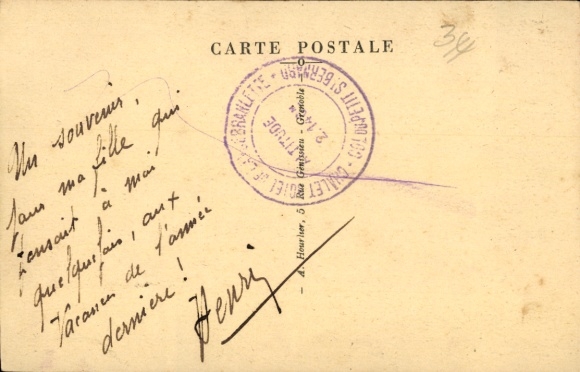 CARTE POSTALE
34
Un souvenir,
ma fille qui
pensait à moi
quelquefois, aux
Vacances de l'année
dernière !
Henri
CHALET HOTEL DE LANCEBRANLETTE
COL DU PETIT St BERNARD
ALTITUDE
A. Hourlier, 5 Rue Génissieu - Grenoble